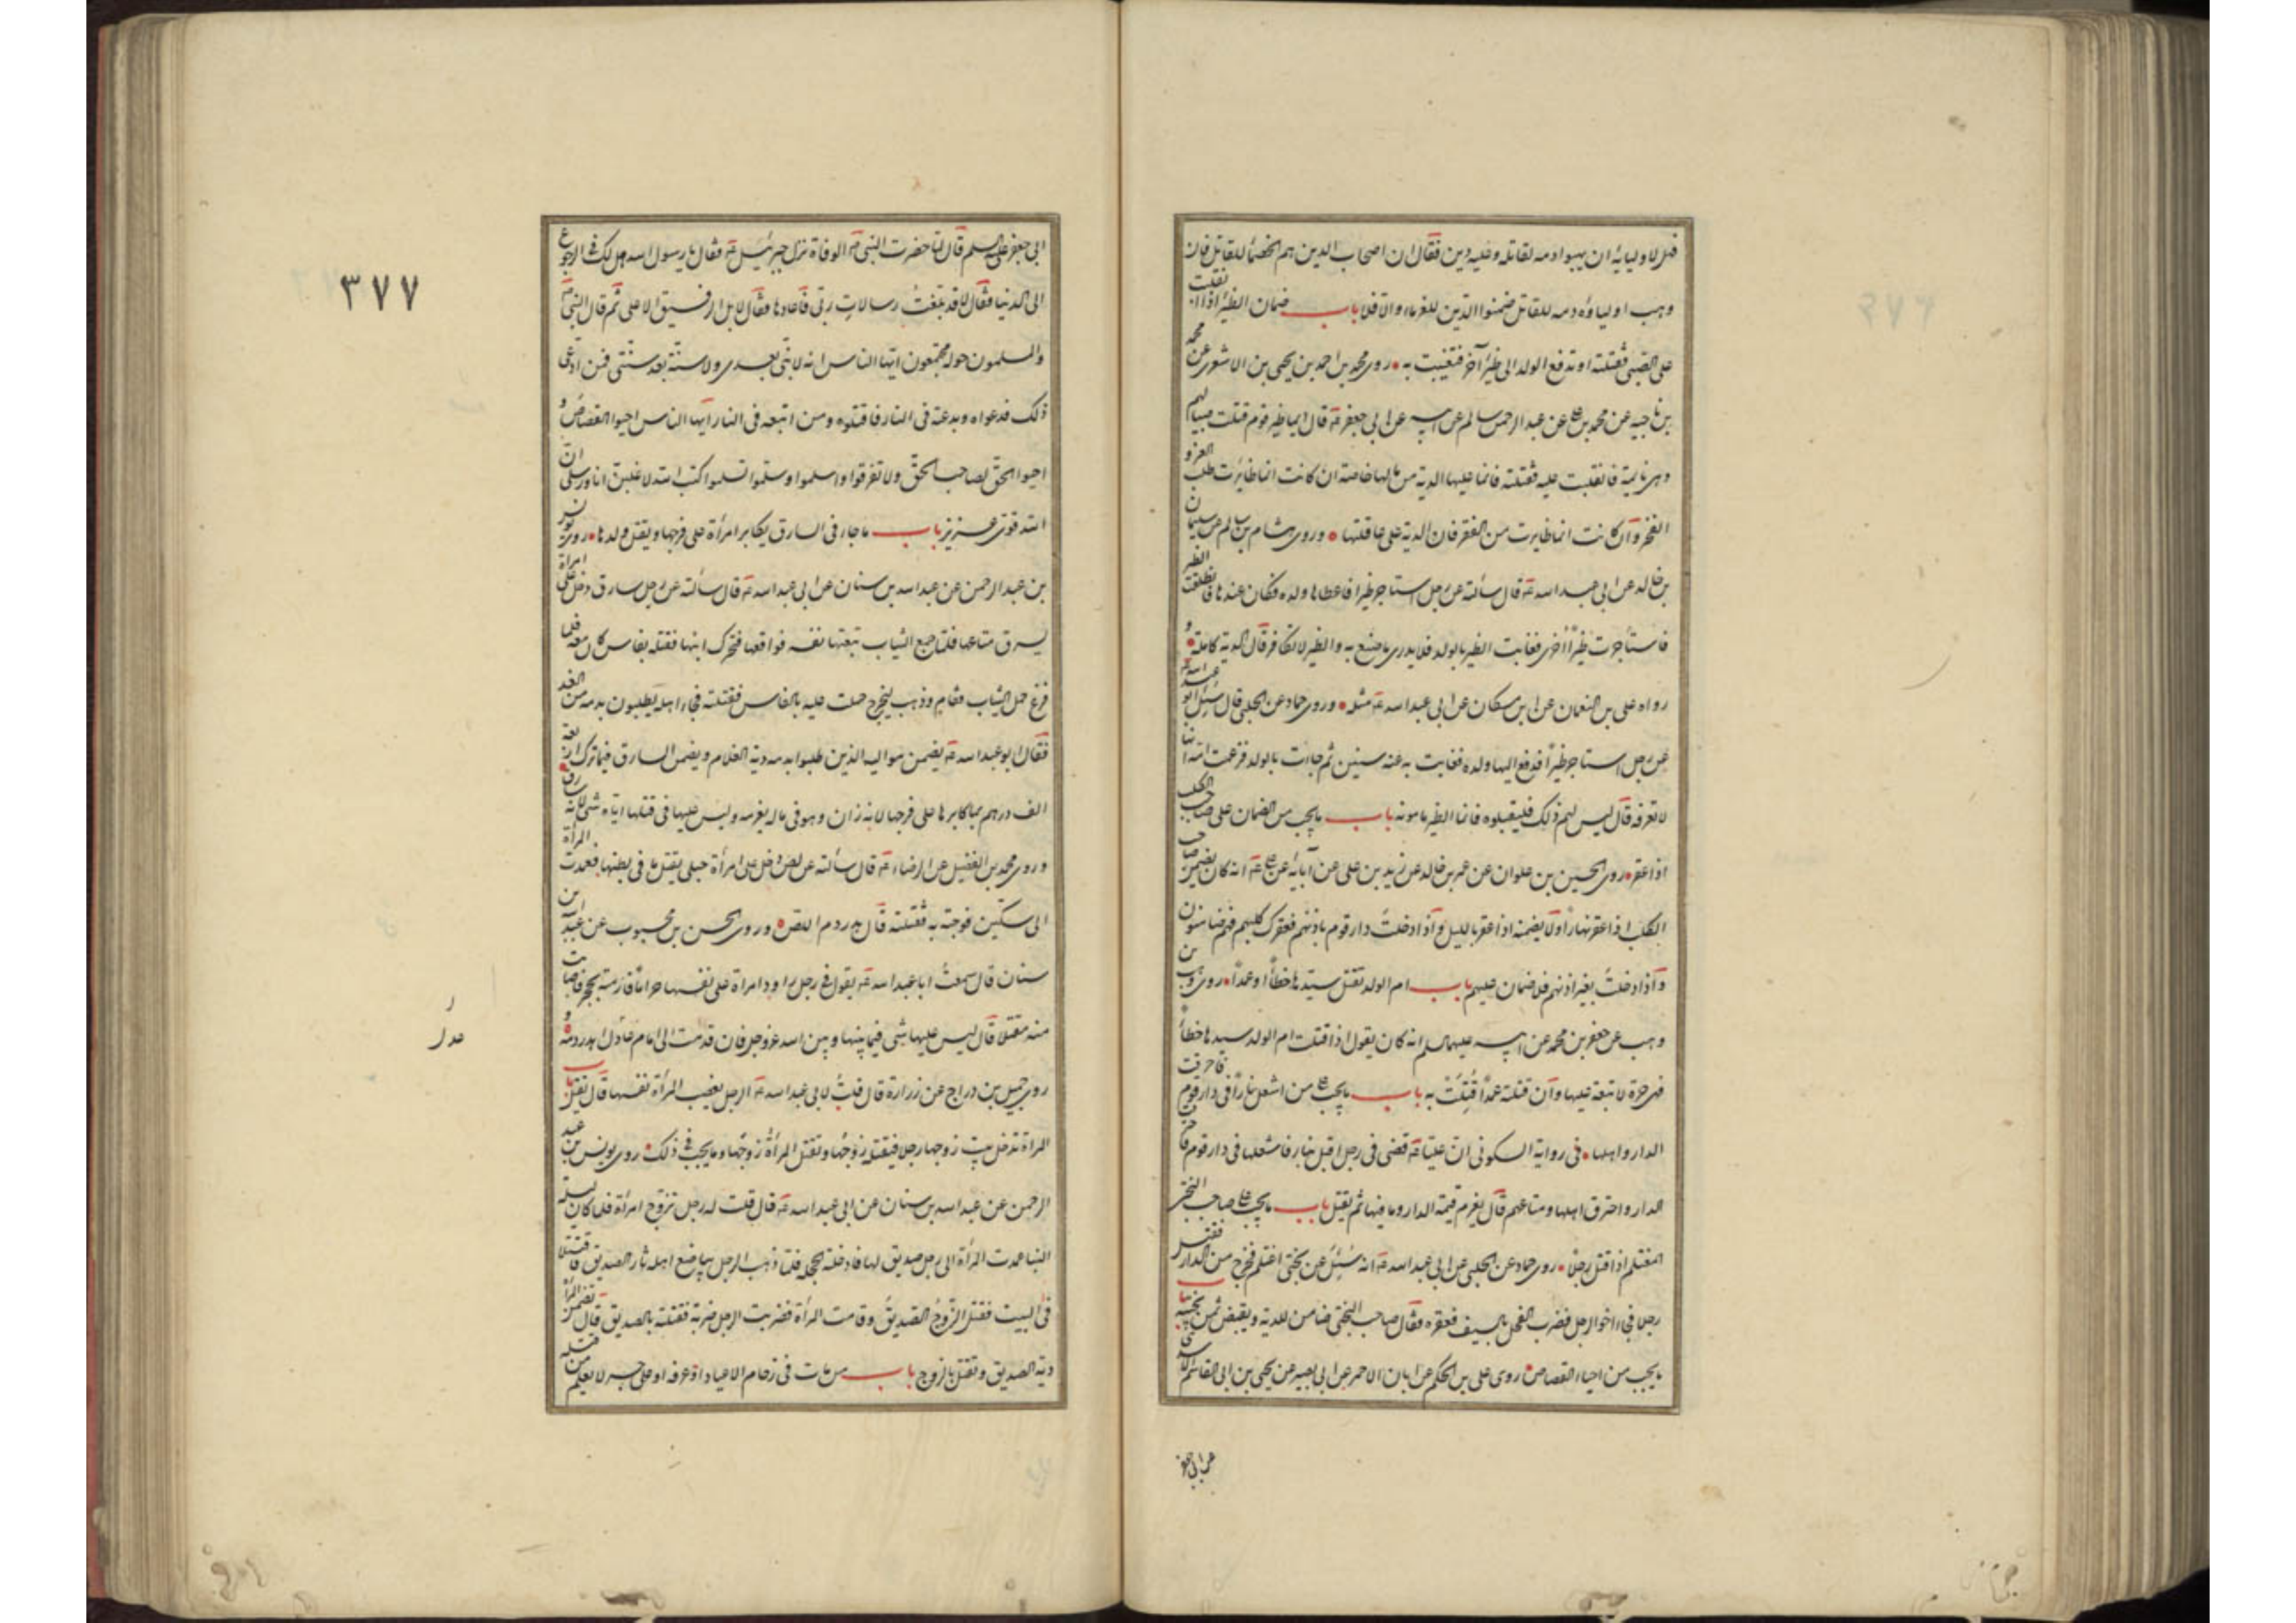 فهل لاوليائه ان يهبوا دمه لقاتله وعليه دين فقال ان اصحاب الدين هم الخصماء للقاتل فان
وهب اولياؤه دمه للقاتل ضمنوا الدين للغرماء والا فلا باب ضمان الظئر اذا انقلبت
على الصبى فقتلته او تدفع الولد الى ظئر آخر فتغيبت به روى محمد بن احمد بن يحيى بن الاشعرى عن محمد
بن ناجيه عن محمد بن على عن عبد الرحمن سالم عن ابيه عن ابى جعفر ع قال ايما ظئر قوم قتلت صبيا لهم
وهى نايمة فانقلبت عليه فقتلته فانما عليها الدية من مالها خاصة ان كانت انما ظايرت طلب العز و
الفخر وان كانت انما ظايرت من الفقر فان الدية على عاقلتها وروى هشام بن سالم عن سليمان
بن خالد عن ابى عبد الله ع قال سألته عن رجل استاجر ظئرا فاعطاها ولده فكان عندها فانطلقت الظئر
فاستأجرت ظئرا اخرى فغابت الظئر بالولد فلا يدرى ما صنع به والظئر لا تكافر قال الدية كاملة و
رواه على بن النعمان عن ابن مسكان عن ابى عبد الله ع مثله وروى حماد عن الحلبى قال سئل ابو عبد الله ع
عن رجل استاجر ظئرا فدفع اليها ولده فغابت به عنه سنين ثم جاءت بالولد فزعمت امه انها
لا تعرفه قال ليس لهم ذلك فليقبلوه فانما الظئر مامونه باب ما يجب من الضمان على صاحب الكلب
اذا عقر روى الحسين بن علوان عن عمر بن خالد عن زيد بن على عن آبائه عن على ع انه كان يضمن صاحب
الكلب اذا عقر نهارا ولا يضمنه اذا عقر بالليل واذا دخلت دار قوم باذنهم فعقرك كلبهم فهم ضامنون
واذا دخلت بغير اذنهم فلا ضمان عليهم باب ام الولد تقتل سيدها خطأ او عمدا روى وهب بن
وهب عن جعفر بن محمد عن ابيه عليهما السلم انه كان يقول اذا قتلت ام الولد سيدها خطأ
فهى حرة لا تبعة عليها وان قتلته عمدا قتلت به باب ما يجب على من اشعل نارا فى دار قوم فاحرقت
الدار واهلها فى رواية السكونى ان عليا ع قضى فى رجل اقبل بنار فاشعلها فى دار قوم فاحترقت
الدار واحترق اهلها ومتاعهم قال يغرم قيمة الدار وما فيها ثم يقتل باب ما يجب على صاحب البختى
المغتلم اذا قتل رجلا روى حماد عن الحلبى عن ابى عبد الله ع انه سئل عن بختى اغتلم فخرج من الدار فقتل
رجلا فجاء اخو الرجل فضرب الفحل بالسيف فعقره فقال صاحب البختى ضامن للدية ويقبض ثمن بختيه باب
ما يجب من احياء القصاص روى على بن الحكم عن ابان الاحمر عن ابى بصير عن يحيى بن ابى القاسم الاسدى
عن ابى جعفر
٣٧٧
ابى جعفر عليه السلم قال لما حضرت النبى ص الوفاة نزل جبرئيل ع فقال يا رسول الله هل لك فى الرجوع
الى الدنيا فقال لا قد بلغت رسالات ربى فاعادها فقال لا بل الرفيق الاعلى ثم قال النبى ص
والمسلمون حوله مجتمعون ايها الناس انه لا نبى بعدى ولا سنة بعد سنتى فمن ادعى
ذلك فدعواه وبدعته فى النار فاقتلوه ومن اتبعه فى النار ايها الناس احيوا القصاص و
احيوا الحق لصاحب الحق ولا تفرقوا واسلموا وسلموا تسلموا كتب الله لاغلبن انا ورسلى ان
الله قوى عزيز باب ما جاء فى السارق يكابر امرأة على فرجها ويقتل ولدها روى يونس
بن عبد الرحمن عن عبد الله بن سنان عن ابى عبد الله ع قال سألته عن رجل سارق دخل على امراة
ليسرق متاعها فلما جمع الثياب تبعتها نفسه فواقعها فتحرك ابنها فقتله بفاس كان معه فلما
فرغ حمل الثياب فقام وذهب ليخرج حملت عليه بالفاس فقتلته فجاء اهله يطلبون بدمه من الغد
فقال ابو عبد الله ع يضمن مواليه الذين طلبوا بدمه دية الغلام ويضمن السارق فيما ترك اربعة
الف درهم بما كابرها على فرجها لانه زان وهو فى ماله يغرمه وليس عليها فى قتلها اياه شئ لانه سارق
وروى محمد بن الفضيل عن الرضا ع قال سألته عن لص دخل على امرأة حبلى يقتل ما فى بطنها فعمدت المرأة
الى سكين فوجته به فقتلته قال هدر دم اللص وروى الحسن بن محبوب عن عبد الله بن
سنان قال سمعت ابا عبد الله ع يقول فى رجل راود امراة على نفسها حراما فرمته بحجر فاصابت
منه مقتلا قال ليس عليها شئ فيما بينها وبين الله عز وجل فان قدمت الى امام عادل اهدر دمه و
روى جميل بن دراج عن زرارة قال قلت لابى عبد الله ع الرجل يغصب المرأة نفسها قال يقتل باب
المراة تدخل بيت زوجها رجلا فيقتله زوجها وتقتل المرأة زوجها وما يجب فى ذلك روى يونس بن عبد
الرحمن عن عبد الله بن سنان عن ابى عبد الله ع قال قلت له رجل تزوج امرأة فلما كان ليلة
البنا عمدت المرأة الى رجل صديق لها فادخلته الحجلة فلما ذهب الرجل يباضع اهله ثار الصديق فاقتتلا
فى البيت فقتل الزوج الصديق وقامت المرأة فضربت الرجل ضربة فقتلته بالصديق قال تضمن المرأة
دية الصديق وتقتل بالزوج باب من مات فى زحام الاعياد او عرفه او على جسر لا يعلم من قتله